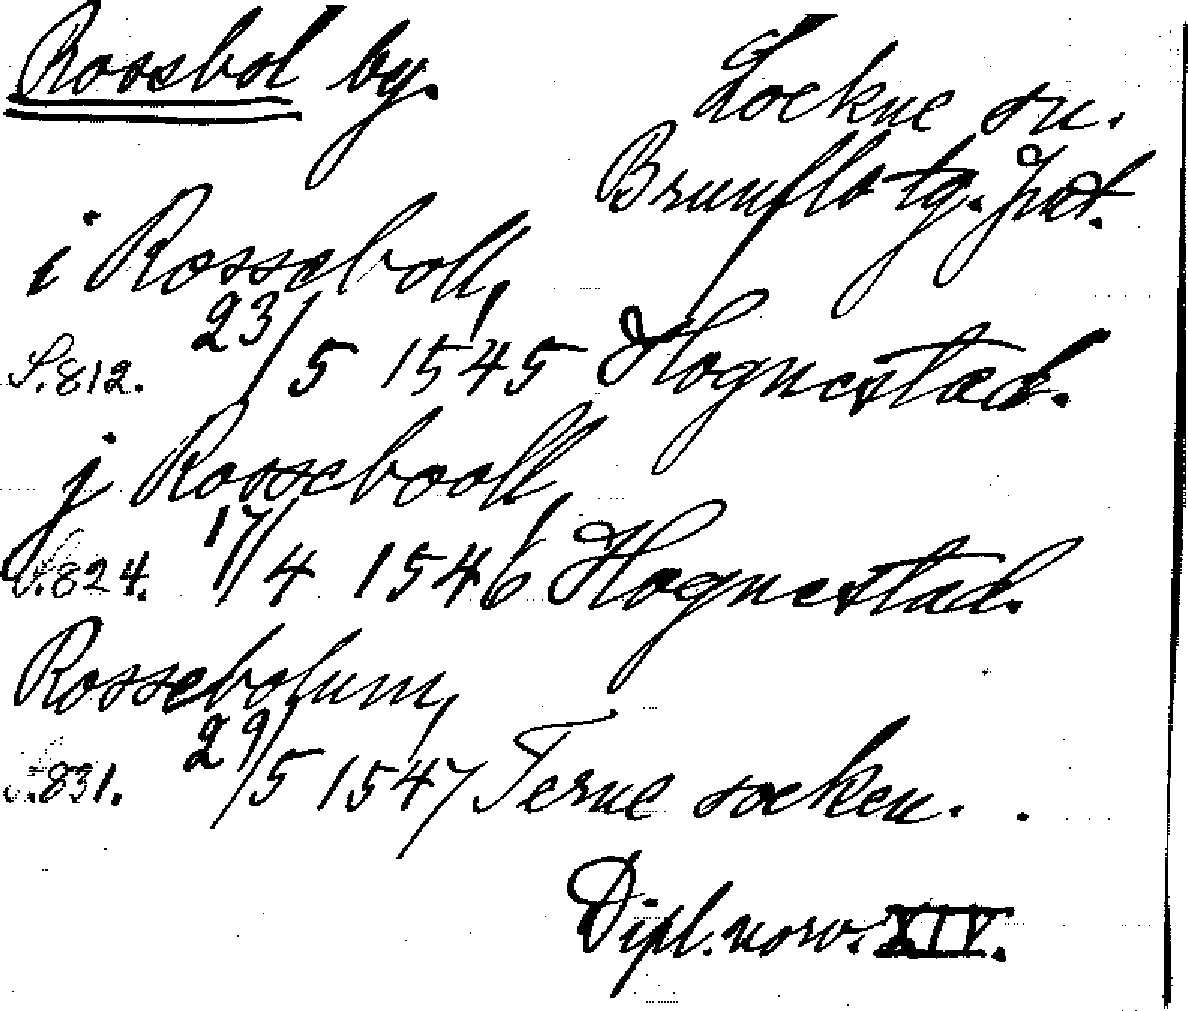 Rossbol by.
Lockne sn.
Brunflo tg. Jmt.
i Rosseboll,
S. 812. 23/5 1545 Hognestad.
j Rossebooll,
S. 824. 17/4 1546 Hognestad.
Rossebolum,
S. 831. 29/5 1547 Ferne socken.
Dipl. norv. XIV.